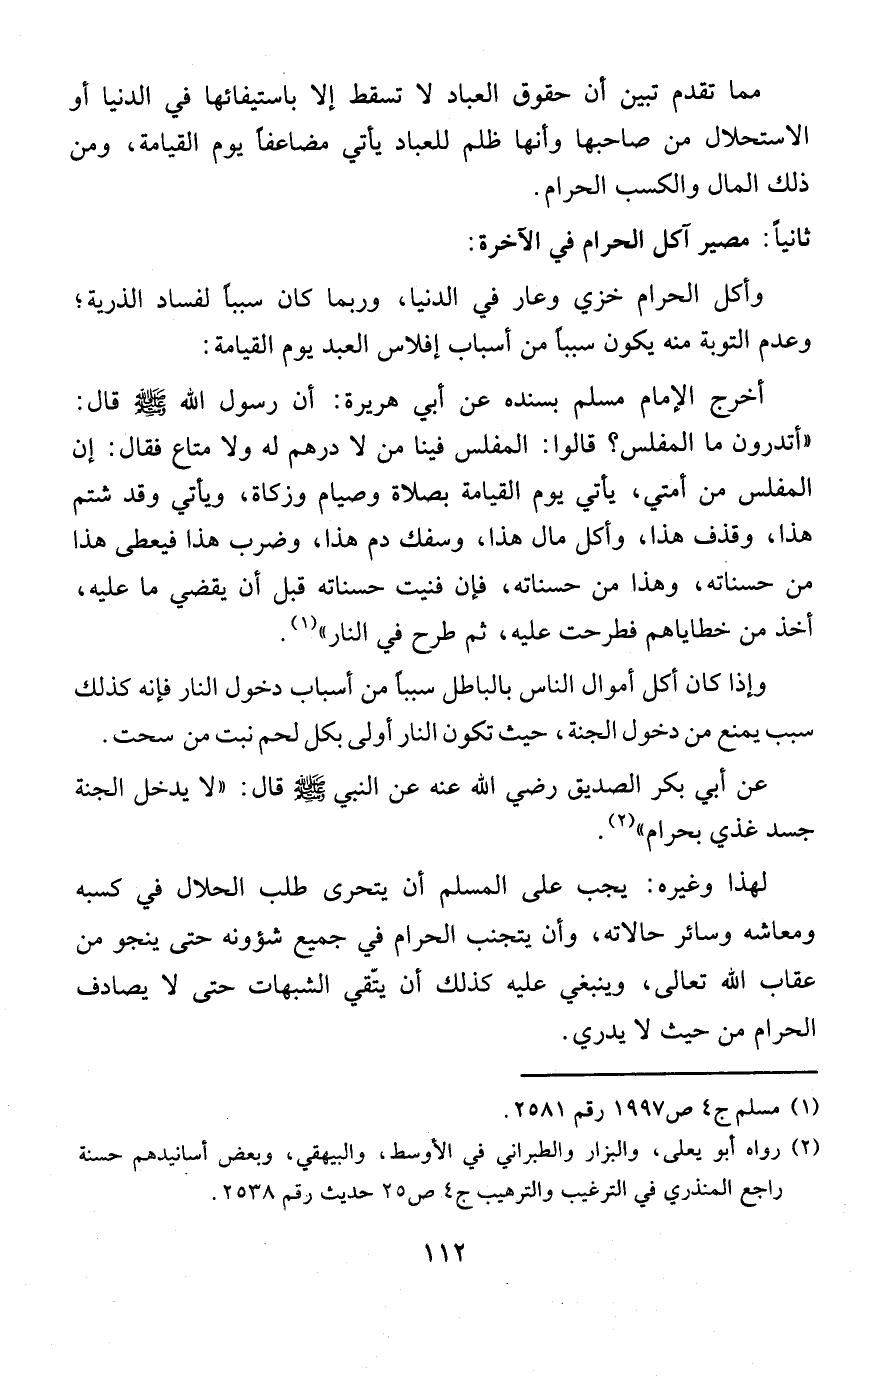 مما تقدم تبين أن حقوق العباد لا تسقط إلا باستيفائها في الدنيا أو
الاستحلال من صاحبها وأنها ظلم للعباد يأتي مضاعفاً يوم القيامة، ومن
ذلك المال والكسب الحرام.
ثانياً: مصير آكل الحرام في الآخرة:
وأكل الحرام خزي وعار في الدنيا، وربما كان سبباً لفساد الذرية؛
وعدم التوبة منه يكون سبباً من أسباب إفلاس العبد يوم القيامة:
أخرج الإمام مسلم بسنده عن أبي هريرة: أن رسول الله ﷺ قال:
«أتدرون ما المفلس؟ قالوا: المفلس فينا من لا درهم له ولا متاع فقال: إن
المفلس من أمتي، يأتي يوم القيامة بصلاة وصيام وزكاة، ويأتي وقد شتم
هذا، وقذف هذا، وأكل مال هذا، وسفك دم هذا، وضرب هذا فيعطى هذا
من حسناته، وهذا من حسناته، فإن فنيت حسناته قبل أن يقضي ما عليه،
أخذ من خطاياهم فطرحت عليه، ثم طرح في النار»(١).
وإذا كان أكل أموال الناس بالباطل سبباً من أسباب دخول النار فإنه كذلك
سبب يمنع من دخول الجنة، حيث تكون النار أولى بكل لحم نبت من سحت.
عن أبي بكر الصديق رضي الله عنه عن النبي ﷺ قال: «لا يدخل الجنة
جسد غذي بحرام»(٢).
لهذا وغيره: يجب على المسلم أن يتحرى طلب الحلال في كسبه
ومعاشه وسائر حالاته، وأن يتجنب الحرام في جميع شؤونه حتى ينجو من
عقاب الله تعالى، وينبغي عليه كذلك أن يتّقي الشبهات حتى لا يصادف
الحرام من حيث لا يدري.
(١) مسلم ج٤ ص١٩٩٧ رقم ٢٥٨١.
(٢) رواه أبو يعلى، والبزار والطبراني في الأوسط، والبيهقي، وبعض أسانيدهم حسنة
راجع المنذري في الترغيب والترهيب ج٤ ص٢٥ حديث رقم ٢٥٣٨.
١١٢